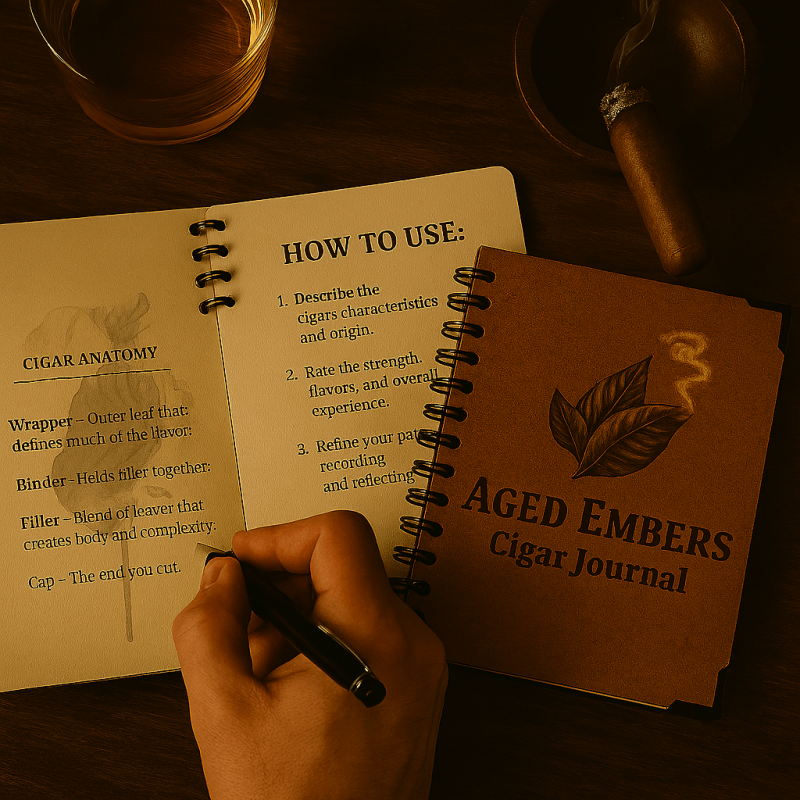 CIGAR ANATOMY
Wrapper – Outer leaf that:
defines much of the flavor:
Binder – Helds filler together:
Filler – Blend of leaver that
creates body and complexity:
Cap – The end you cut.
HOW TO USE:
1. Describe the
cigars characteristics
and origin.
2. Rate the strength.
flavors, and overall
experience.
3. Refine your
recording
and reflecting
AGED EMBERS
Cigar Journal